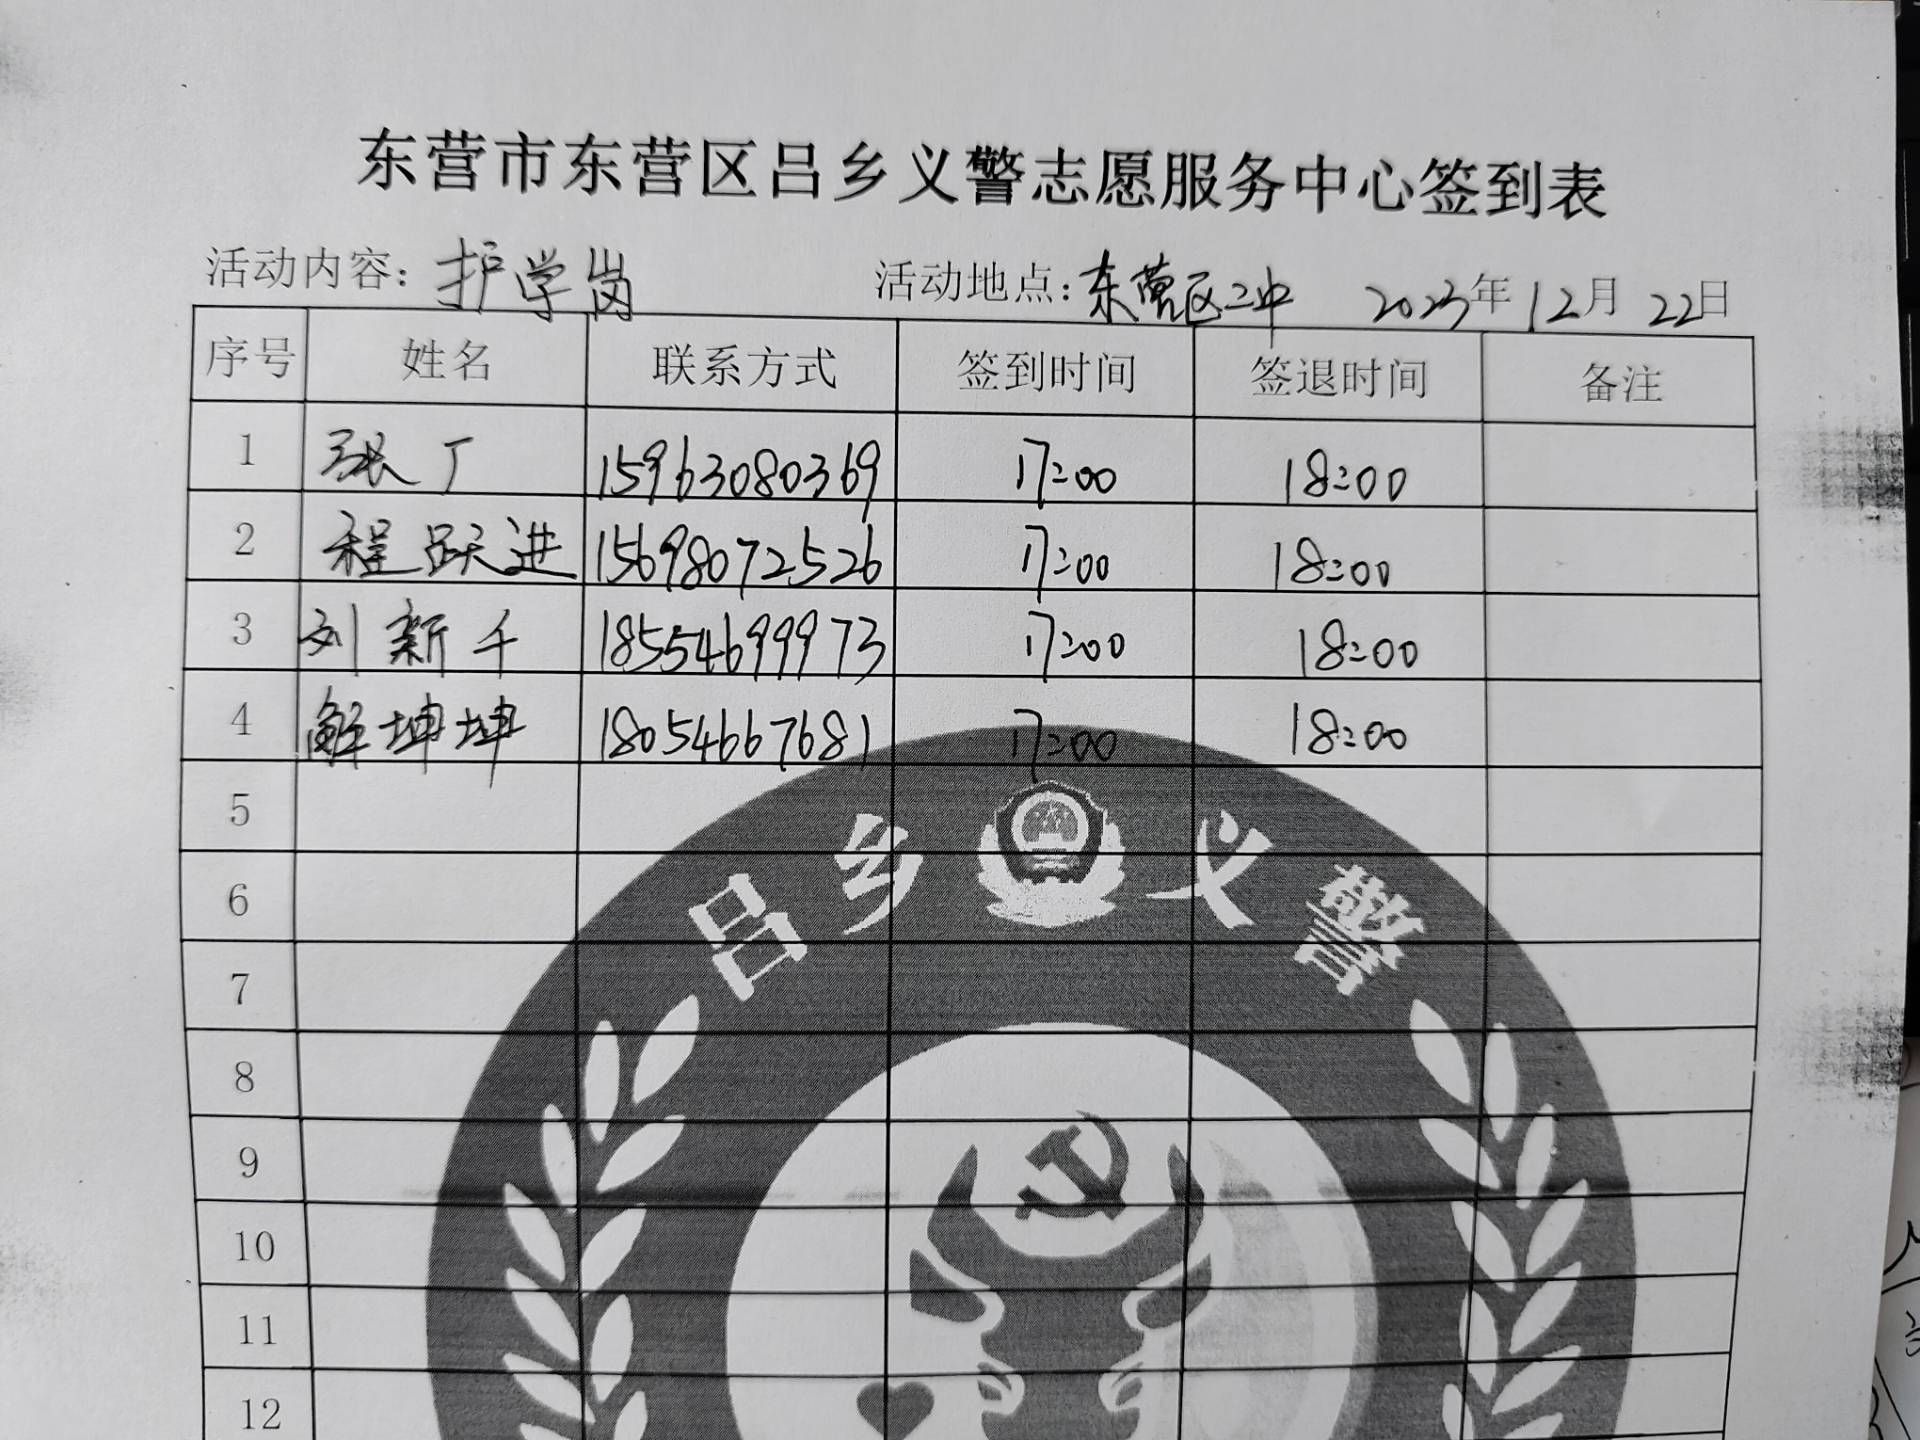 东营市东营区吕乡义警志愿服务中心签到表
活动内容：护学岗 活动地点：东营区二中 2023年12月22日
序号 姓名 联系方式 签到时间 签退时间 备注
1 张广 15963080369 17:00 18:00
2 程跃进 15698072526 17:00 18:00
3 刘新千 18554699973 17:00 18:00
4 解坤坤 18054667681 17:00 18:00
5
6
7
8
9
10
11
12
吕乡义警